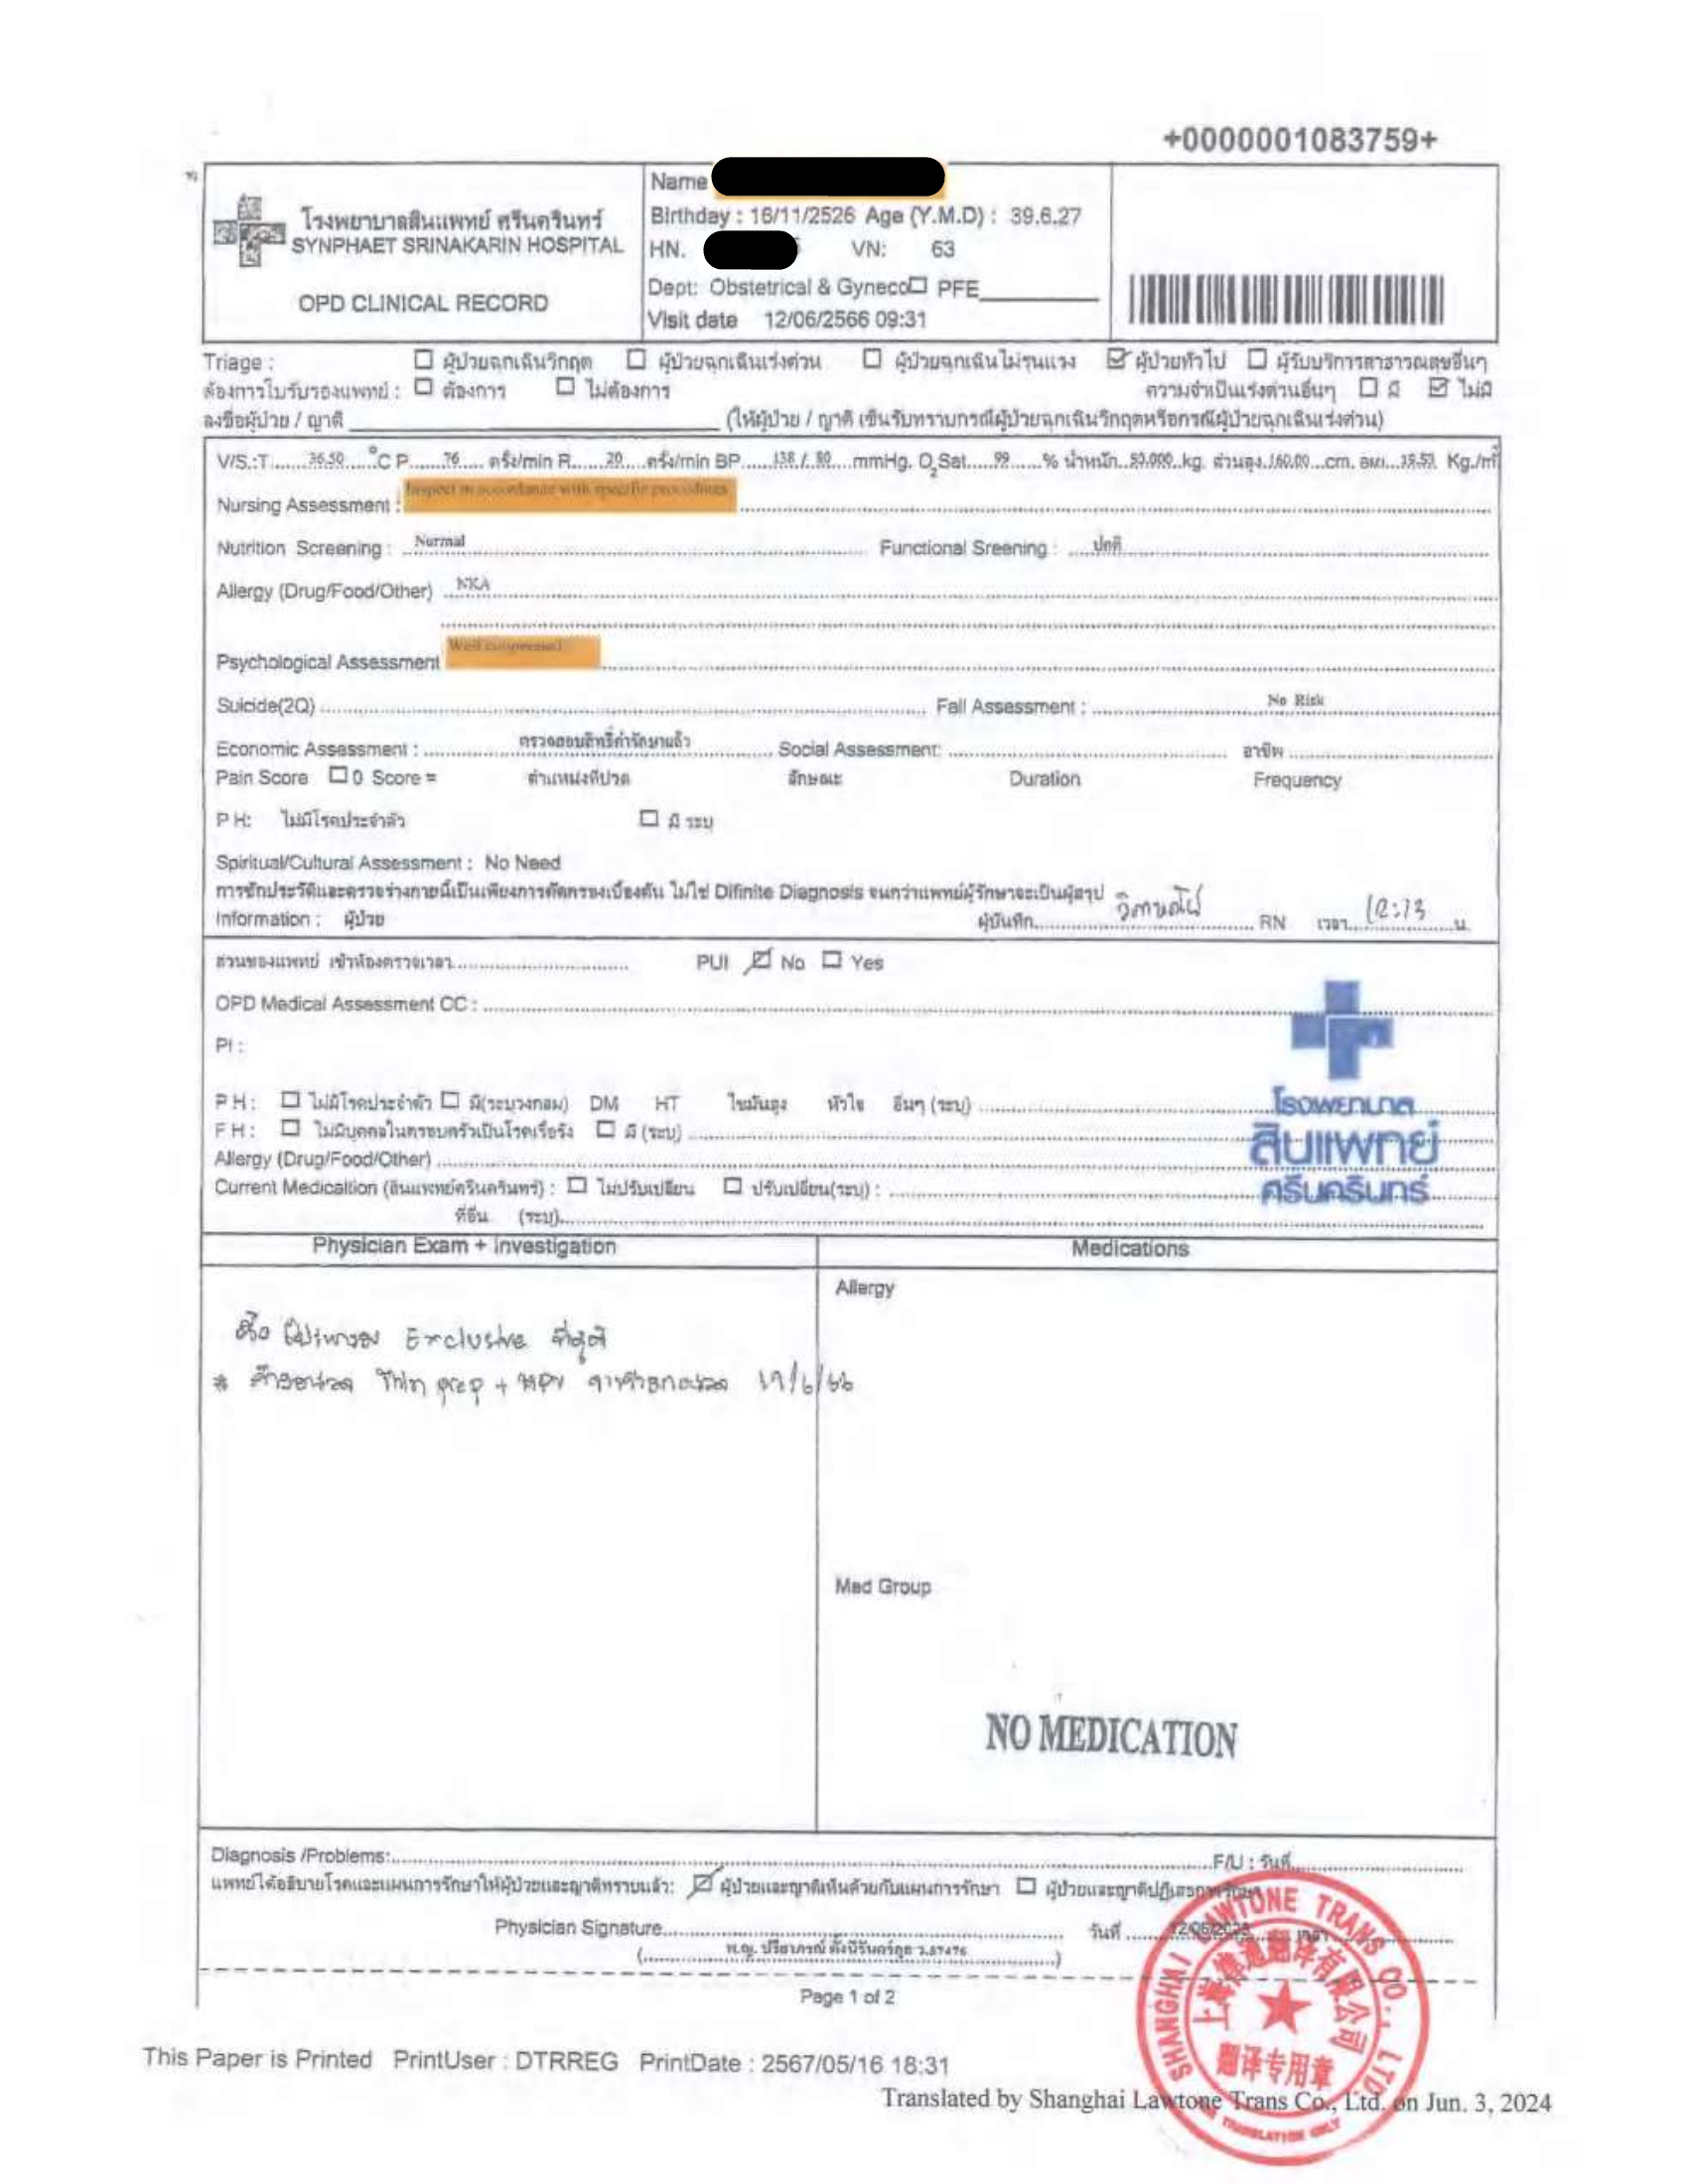 +0000001083759+
โรงพยาบาลสินแพทย์ ศรีนครินทร์
SYNPHAET SRINAKARIN HOSPITAL
OPD CLINICAL RECORD
Name
Birthday : 16/11/2526 Age (Y.M.D) : 39.6.27
HN. VN: 63
Dept: Obstetrical & Gyneco☐ PFE
Visit date 12/06/2566 09:31
Triage : ☐ ผู้ป่วยฉุกเฉินวิกฤต ☐ ผู้ป่วยฉุกเฉินเร่งด่วน ☐ ผู้ป่วยฉุกเฉินไม่รุนแรง ☑ ผู้ป่วยทั่วไป ☐ ผู้รับบริการสาธารณสุขอื่นๆ
ต้องการใบรับรองแพทย์ : ☐ ต้องการ ☐ ไม่ต้องการ ความจำเป็นเร่งด่วนอื่นๆ ☐ มี ☑ ไม่มี
ลงชื่อผู้ป่วย / ญาติ (ให้ผู้ป่วย / ญาติ เซ็นรับทราบกรณีผู้ป่วยฉุกเฉินวิกฤตหรือกรณีผู้ป่วยฉุกเฉินเร่งด่วน)
V/S.:T 36.50 °C P 76 ครั้ง/min R 20 ครั้ง/min BP 138 / 80 mmHg. O₂Sat 99 % น้ำหนัก kg. ส่วนสูง 160.00 cm. BMI Kg./m²
Nursing Assessment : Inspect in accordance with specific procedures
Nutrition Screening : Normal Functional Sreening : ปกติ
Allergy (Drug/Food/Other) NKA
Psychological Assessment Well
Suicide(2Q) Fall Assessment : No Risk
Economic Assessment : ตรวจสอบสิทธิ์ค่ารักษาแล้ว Social Assessment: อาชีพ
Pain Score ☐ 0 Score = ตำแหน่งที่ปวด ลักษณะ Duration Frequency
P H: ไม่มีโรคประจำตัว ☐ มี ระบุ
Spiritual/Cultural Assessment : No Need
การซักประวัติและตรวจร่างกายนี้เป็นเพียงการคัดกรองเบื้องต้น ไม่ใช่ Difinite Diagnosis จนกว่าแพทย์ผู้รักษาจะเป็นผู้สรุป
Information : ผู้ป่วย ผู้บันทึก RN เวลา น.
ส่วนของแพทย์ เข้าห้องตรวจเวลา PUI ☑ No ☐ Yes
OPD Medical Assessment CC :
PI :
P H : ☐ ไม่มีโรคประจำตัว ☐ มี(ระบุวงกลม) DM HT ไขมันสูง หัวใจ อื่นๆ (ระบุ)
F H : ☐ ไม่มีบุคคลในครอบครัวเป็นโรคเรื้อรัง ☐ มี (ระบุ)
Allergy (Drug/Food/Other)
Current Medicaltion (สินแพทย์ศรีนครินทร์) : ☐ ไม่ปรับเปลี่ยน ☐ ปรับเปลี่ยน(ระบุ) :
ที่อื่น (ระบุ)
โรงพยาบาล
สินแพทย์
ศรีนครินทร์
Physician Exam + Investigation
Medications
Allergy
Exclusive
Thin prep + HPV
Med Group
NO MEDICATION
Diagnosis /Problems: F/U : วันที่
แพทย์ได้อธิบายโรคและแผนการรักษาให้ผู้ป่วยและญาติทราบแล้ว: ☑ ผู้ป่วยและญาติเห็นด้วยกับแผนการรักษา ☐ ผู้ป่วยและญาติปฏิเสธการรักษา
Physician Signature วันที่ เวลา
Page 1 of 2
SHANGHAI LAWTONE TRANS CO., LTD.
翻译专用章
TRANSLATION ONLY
This Paper is Printed PrintUser : DTRREG PrintDate : 2567/05/16 18:31
Translated by Shanghai Lawtone Trans Co., Ltd. on Jun. 3, 2024